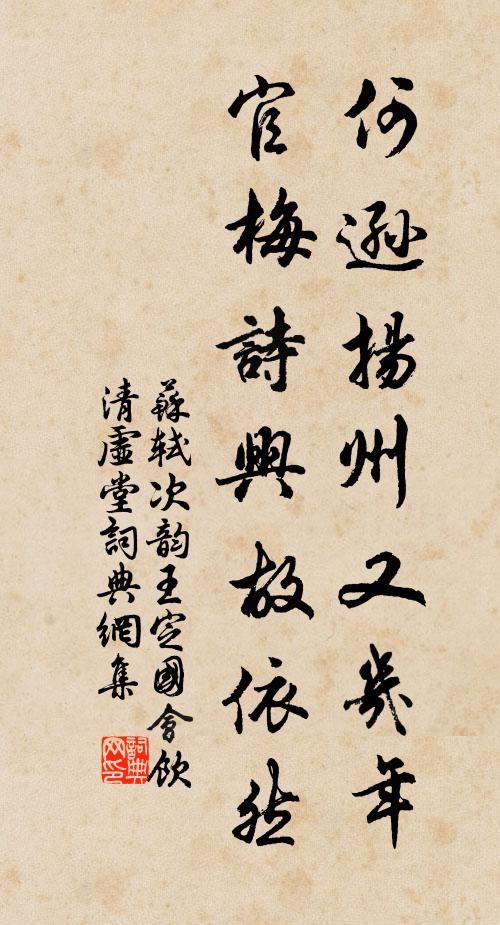 何遜揚州又幾年
官梅詩興故依然
蘇軾次韵王定國會飲
清虛堂詞典網集
詞典网印